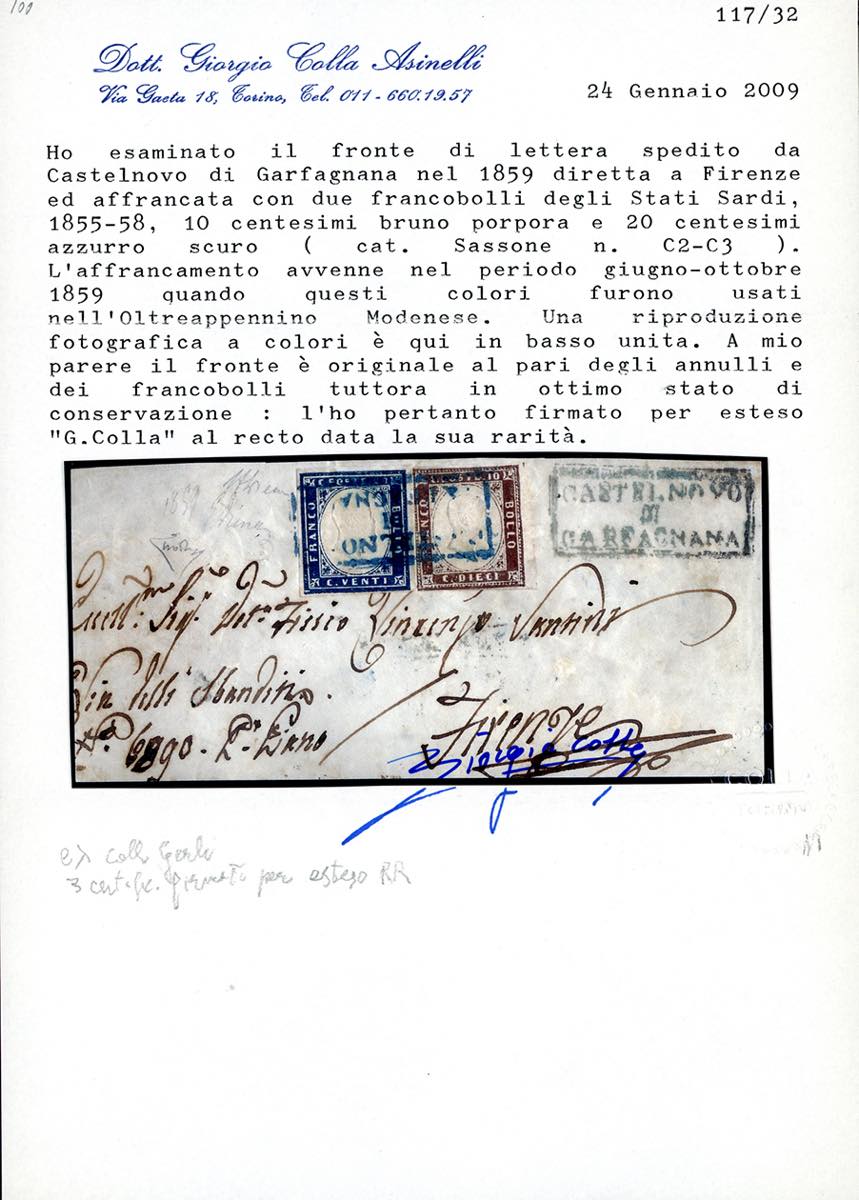 100
117/32
Dott. Giorgio Colla Asinelli
Via Gaeta 18, Torino, Tel. 011 - 660.19.57
24 Gennaio 2009
Ho esaminato il fronte di lettera spedito da
Castelnovo di Garfagnana nel 1859 diretta a Firenze
ed affrancata con due francobolli degli Stati Sardi,
1855-58, 10 centesimi bruno porpora e 20 centesimi
azzurro scuro ( cat. Sassone n. C2-C3 ).
L'affrancamento avvenne nel periodo giugno-ottobre
1859 quando questi colori furono usati
nell'Oltreappennino Modenese. Una riproduzione
fotografica a colori è qui in basso unita. A mio
parere il fronte è originale al pari degli annulli e
dei francobolli tuttora in ottimo stato di
conservazione : l'ho pertanto firmato per esteso
"G.Colla" al recto data la sua rarità.
FRANCO BOLLO C. VENTI
BOLLO C. DIECI
CASTELNOVO
DI
GARFAGNANA
Vincenzo Santini
Via delli
6890. P.º Piano
Firenze
Giorgio Colla
ex coll.
3 certific. per esteso RR